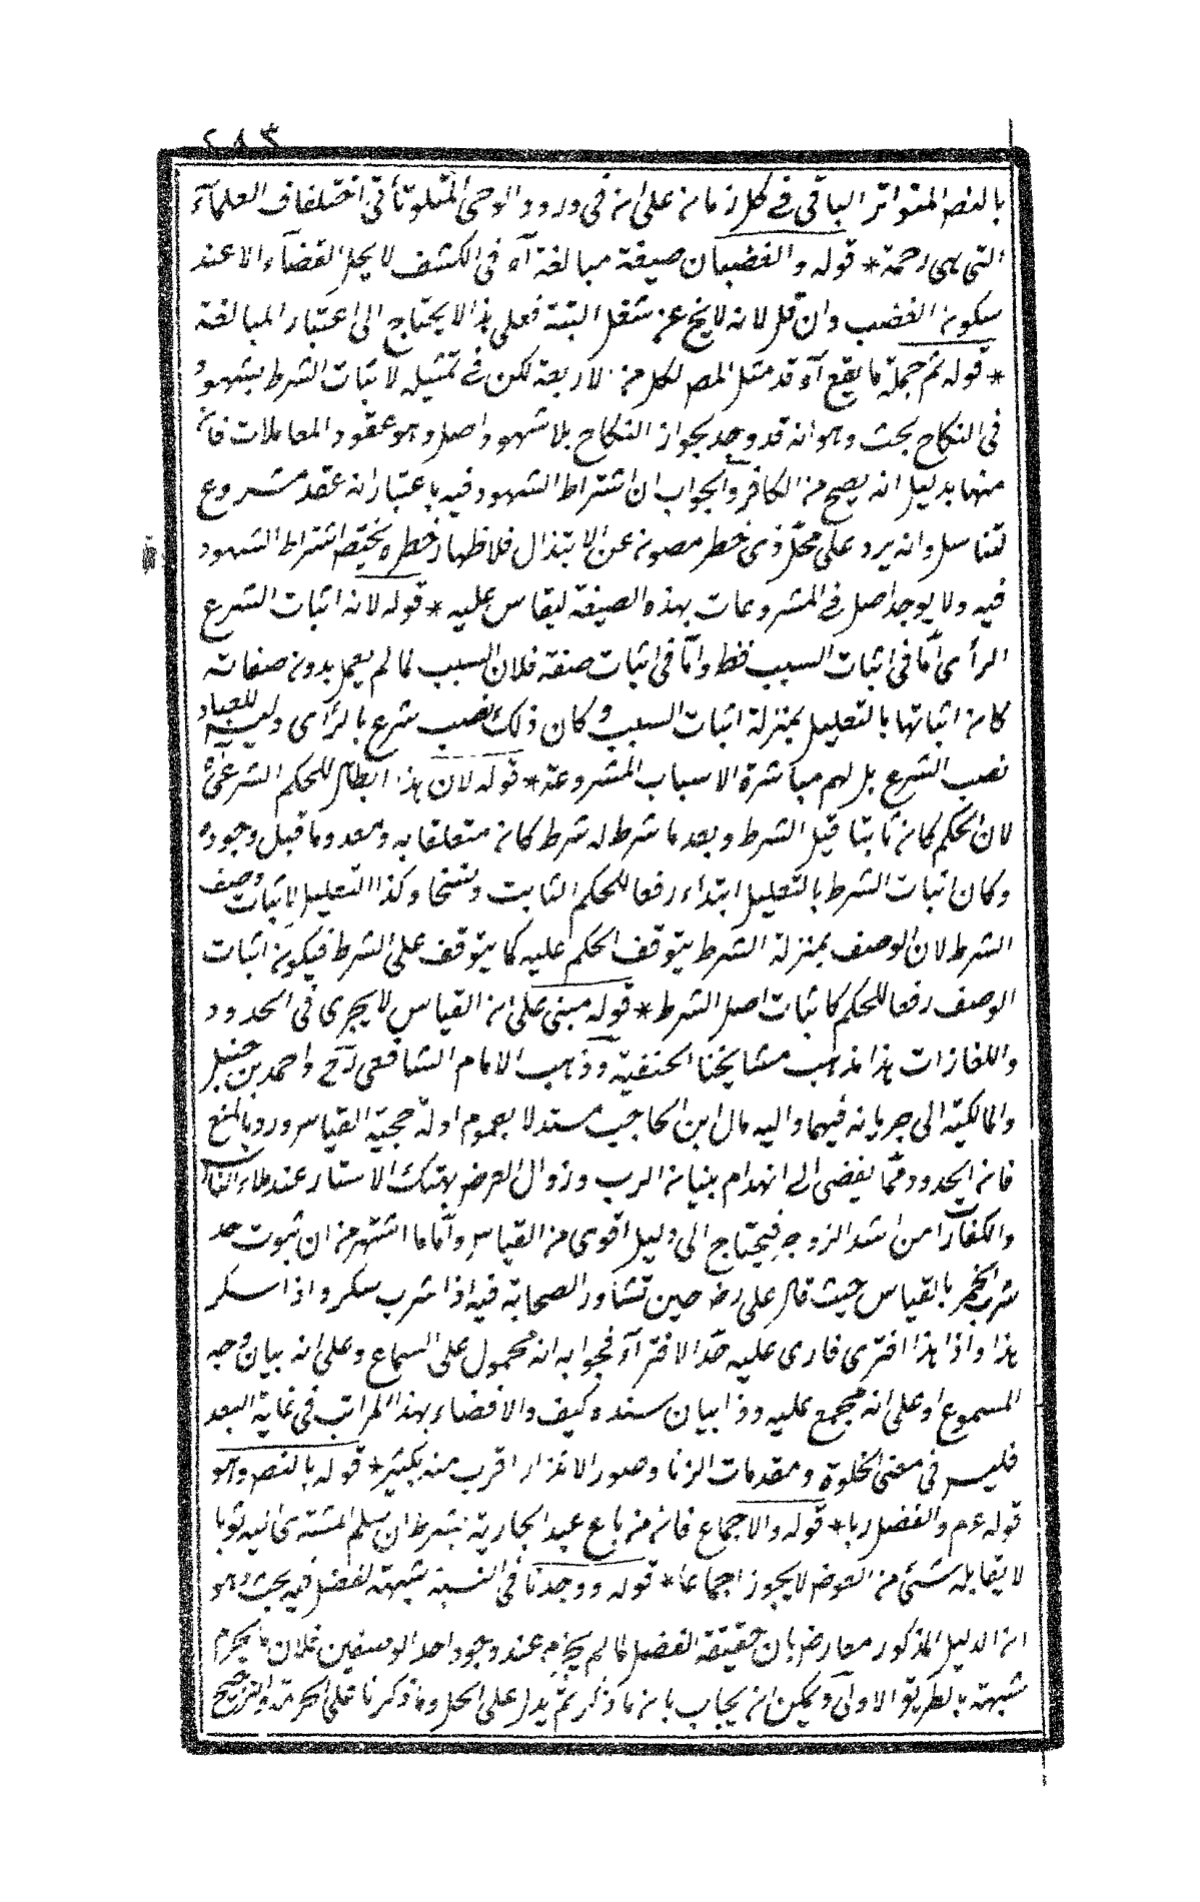 ٢٨٣
بالنص المتواتر الباقى فى كل زمان على ان فى ورود الوحى المتلو تأتى اختلاف العلماء
التى هى رحمة * قوله والغضبان صيغة مبالغة آه فى الكشف لا يحل القضاء الا عند
سكون الغضب وان قل لانه لا يخ عن شغل البتة فعلى هذا لا يحتاج الى اعتبار المبالغة
* قوله ثم جملة ما يقع آه قد مثل المص لكل من الاربعة لكن فى تمثيله لاثبات الشرط بشهود
فى النكاح بحث وهو انه قد وجد بجواز النكاح بلا شهود اصل وهو عقود المعاملات فانه
منها بدليل انه يصح من الكافر والجواب ان اشتراط الشهود فيه باعتبار انه عقد مشروع
تناسل وانه يرد على محل ذى خطر مصون عن الابتذال فلاظهار خطره يختص اشتراط الشهود
فيه ولا يوجد اصل فى المشروعات بهذه الصيغة ليقاس عليه * قوله لانه اثبات الشرع
الرأى اما فى اثبات السبب فقط واما فى اثبات صفته فلان السبب لما لم يعمل بدون صفاته
كان اثباتها بالتعليل بمنزلة اثبات السبب وكان ذلك نصب شرع بالرأى وليس للعباد
نصب الشرع بل لهم مباشرة الاسباب المشروعة * قوله لان هذا ابطال للحكم الشرعى
لان الحكم كان ثابتا قبل الشرط وبعد ما شرط له شرط كان متعلقا به ومعدوما قبل وجوده
وكان اثبات الشرط بالتعليل ابتداء رفعا للحكم الثابت ونسخا وكذا التعليل لاثبات وصف
الشرط لان الوصف بمنزلة الشرط يتوقف الحكم عليه كما يتوقف على الشرط فيكون اثبات
الوصف رفعا للحكم كاثبات اصل الشرط * قوله مبنى على ان القياس لا يجرى فى الحدود
والكفارات هذا مذهب مشايخنا الحنفية وذهب الامام الشافعى رح واحمد بن حنبل
والمالكية الى جريانه فيهما واليه مال ابن الحاجب مستدلا بعموم ادلة حجية القياس ورد بالمنع
فان الحدود مما يفضى الى انهدام بنيان الرب وزوال العرض بهتك الاستار عند ملاء الناس
والكفارا من اشد الزوجر فيحتاج الى دليل اقوى من القياس واما ما اشتهر من ان ثبوت حد
شرب الخمر بالقياس حيث قال على رض حين تشاور الصحابة فيه اذا شرب سكر واذا سكر
هذا واذا هذا افترى فارى عليه حد الافتراء فجوابه انه محمول على السماع وعلى انه بيان وجه
المسموع او على انه مجمع عليه وذا بيان سنده كيف والافضاء بهذا المراتب فى غاية البعد
فليس فى معنى الخلوة ومقدمات الزنا وصور الانذار اقرب منه بكثير * قوله بالنص وهو
قوله عم والفضل ربا * قوله والاجماع فان من باع عبدا بجارية بشرط ان يسلم المشترى اليه ثوبا
لا يقابله شئ من العوض لا يجوز اجماعا * قوله ووجدنا فى النسبة شبهة لفضل فيه بحث وهو
ان الدليل المذكور معارض بان حقيقة الفضل لما لم يحرم عند وجود احد الوصفين فلان لا يحرم
شبهته بالطريق الاولى ويمكن ان يجاب بان ما ذكر ثم يدل على الحل وما ذكرنا على الحرمة والترجيح